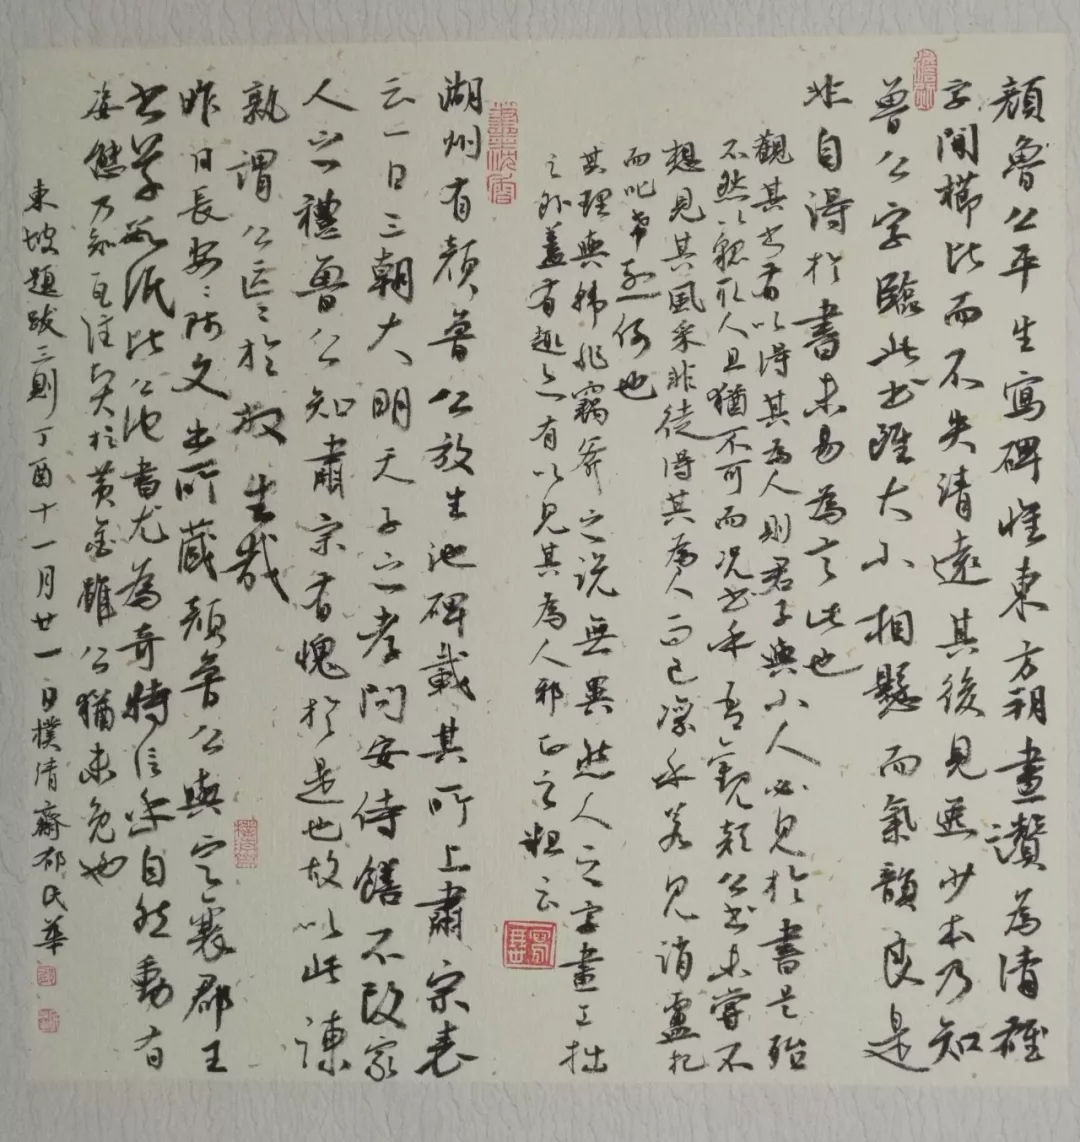 顔魯公平生寫碑惟東方朔畫讃為清雄
字間櫛比而不失清遠其後見逸少本乃知
魯公字臨此書雖大小相懸而氣韻良是
非自得於書未易為言此也
觀其書有以得其為人則君子與小人必見於書是殆
不然以貌取人且猶不可而況書乎吾觀顔公書未嘗不
想見其風采非徒得其為人而已凛乎若見誚盧杞
而叱希烈何也
其理與韩非竊斧之説無異然人之字畫工拙
之外蓋有趣亦有以見其為人邪正之粗云
湖州有顔魯公放生池碑載其所上肅宗表
云一日三朝大明天子之孝問安侍饍不改家
人之禮魯公知肅宗有愧於是也故以此諫
孰謂公區々於放生哉
昨日長安々師文出所蔵顔魯公與定襄郡王
書草數紙比公他書尤為奇特信乎自然動有
姿態乃知瓦注賢於黄金雖公猶未免也
東坡題跋三則丁酉十一月廿一日樸清齋郁氏華